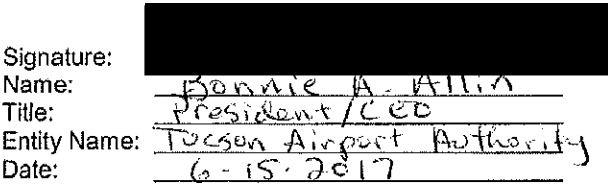 Signature:
Name: Bonnie A. Allin
Title: President/CEO
Entity Name: Tucson Airport Authority
Date: 6-15-2017